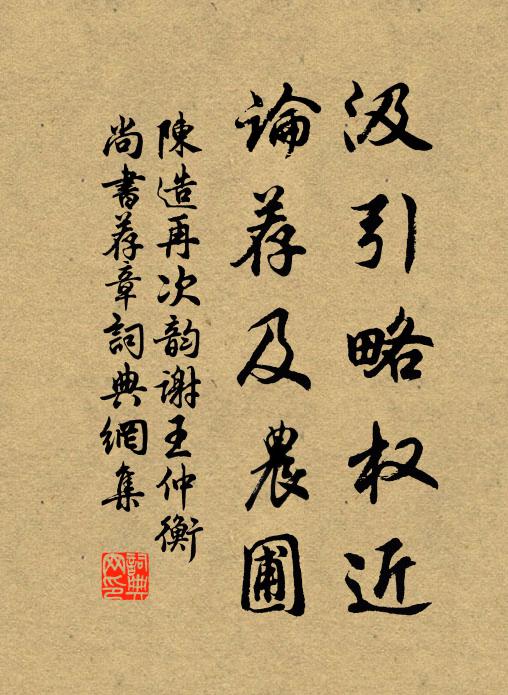 汲引略权近
論荐及農圃
陳造再次韵謝王仲衡
尚書荐章詞典網集
詞典網印